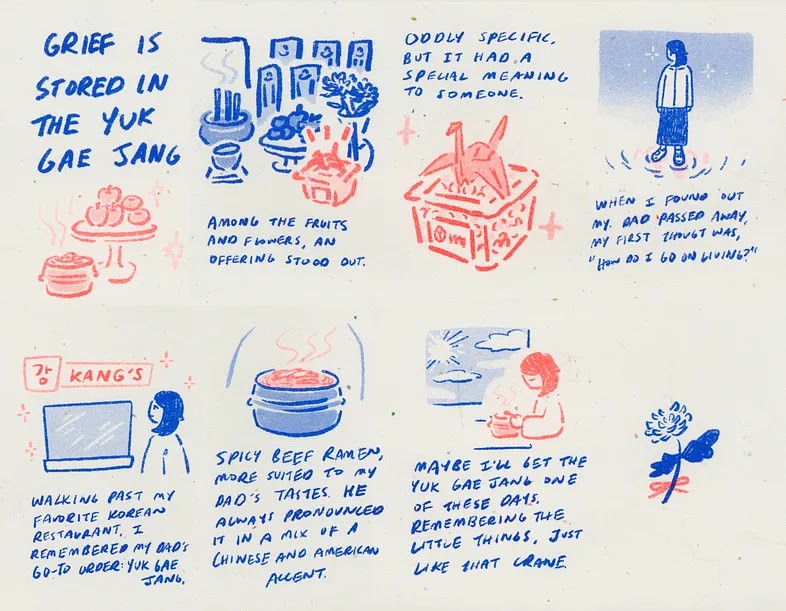 GRIEF IS
STORED IN
THE YUK
GAE JANG
AMONG THE FRUITS
AND FLOWERS, AN
OFFERING STOOD OUT.
ODDLY SPECIFIC,
BUT IT HAD A
SPECIAL MEANING
TO SOMEONE.
WHEN I FOUND OUT
MY DAD PASSED AWAY,
MY FIRST THOUGT WAS,
"HOW DO I GO ON LIVING?"
강 KANG'S
WALKING PAST MY
FAVORITE KOREAN
RESTAURANT, I
REMEMBERED MY DAD'S
GO-TO ORDER: YUK GAE
JANG.
SPICY BEEF RAMEN,
MORE SUITED TO MY
DAD'S TASTES. HE
ALWAYS PRONOUNCED
IT IN A MIX OF A
CHINESE AND AMERICAN
ACCENT.
MAYBE I'LL GET THE
YUK GAE JANG ONE
OF THESE DAYS.
REMEMBERING THE
LITTLE THINGS, JUST
LIKE THAT CRANE.